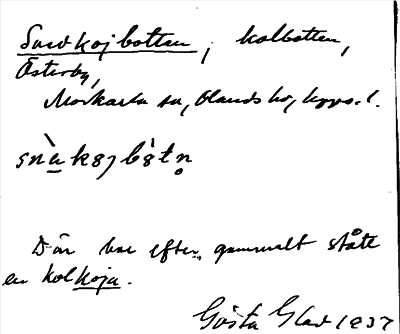 Snedkojbotten, kolbotten,
Österby,
Morkarla sn, Olands hd, Upps. l.
Där har efter gammalt stått
en kolkoja.
Gösta Glad 1937